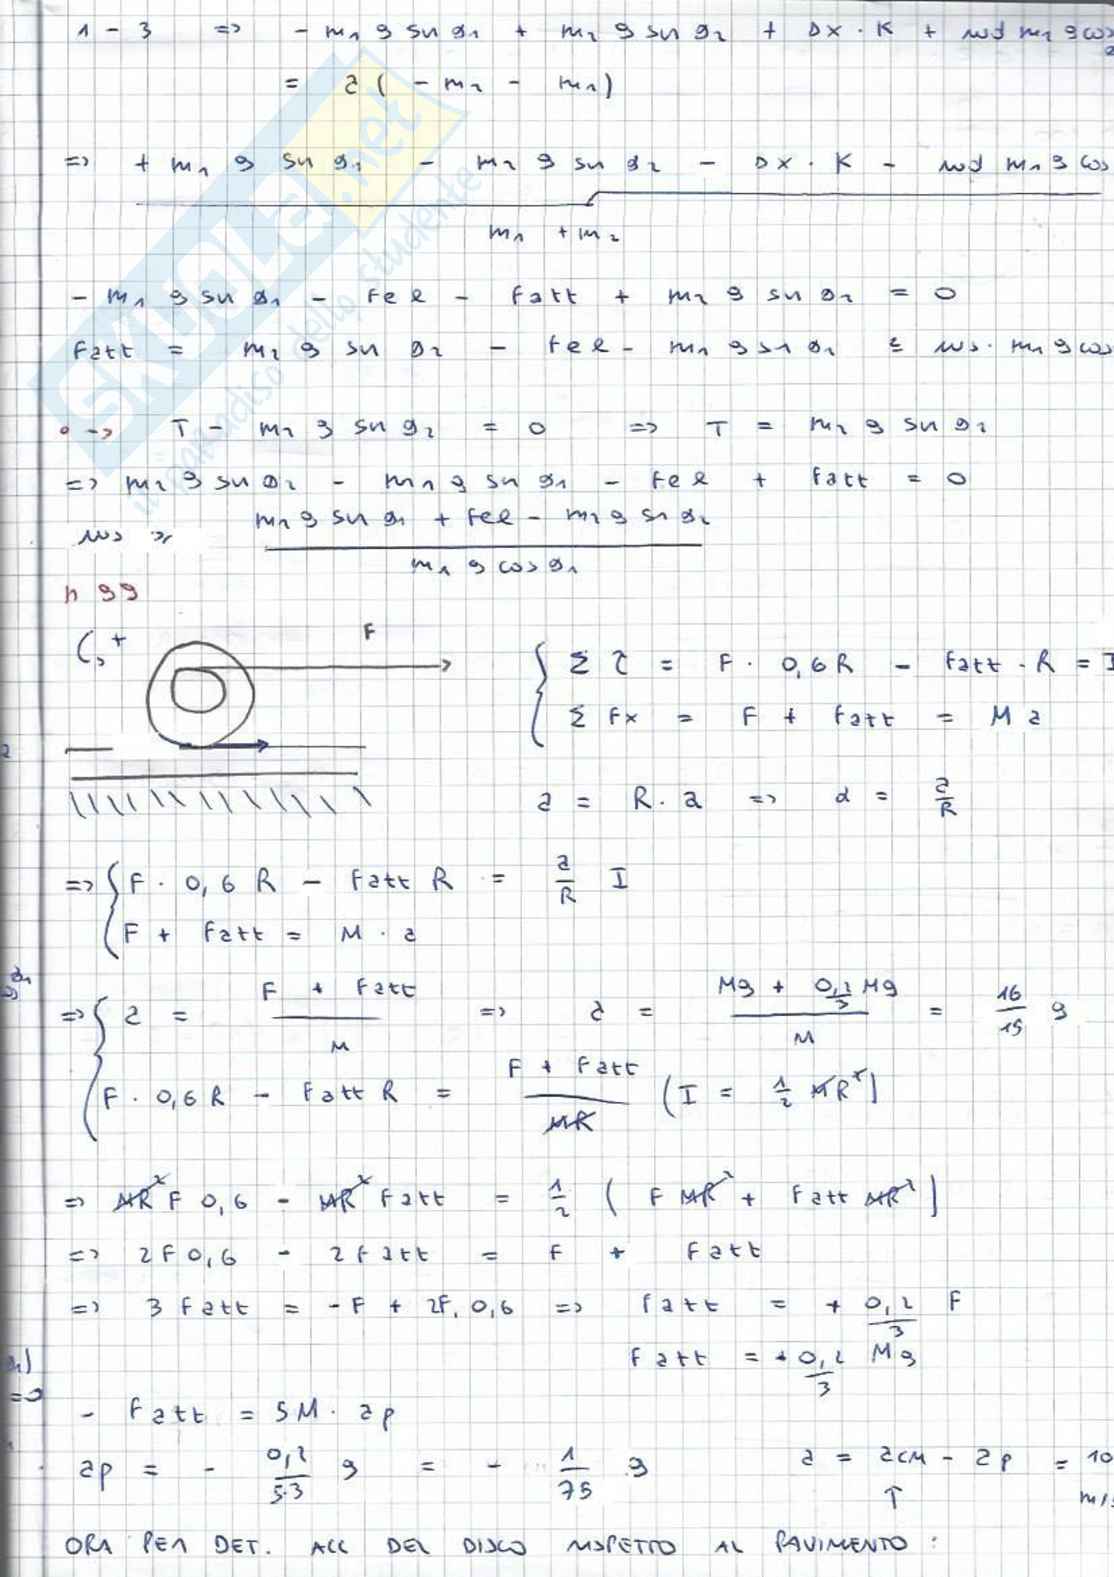 1 - 3 => - m1 g sen θ1 + m2 g sen θ2 + Δx · K + μd m1 g cos
= a ( - m2 - m1 )
=> + m1 g sen θ1 - m2 g sen θ2 - Δx · K - μd m1 g cos
m1 + m2
- m1 g sen θ1 - Fel - Fatt + m2 g sen θ2 = 0
Fatt = m2 g sen θ2 - Fel - m1 g sen θ1 ≤ μs · m1 g cos
• -> T - m2 g sen θ2 = 0 => T = m2 g sen θ2
=> m2 g sen θ2 - m1 g sen θ1 - Fel + Fatt = 0
μs ≥ m1 g sen θ1 + Fel - m2 g sen θ2
m1 g cos θ1
n 99
+ F
Σ τ = F · 0,6 R - Fatt · R = I
Σ Fx = F + Fatt = M a
a = R · α => α = a/R
=> F · 0,6 R - Fatt R = a/R I
F + Fatt = M · a
=> a = F + Fatt / M => a = Mg + 0,2/3 Mg / M = 16/15 g
F · 0,6 R - Fatt R = F + Fatt / MR ( I = 1/2 MR² )
=> MR² F 0,6 - MR² Fatt = 1/2 ( F MR² + Fatt MR² )
=> 2F 0,6 - 2Fatt = F + Fatt
=> 3 Fatt = - F + 2F · 0,6 => Fatt = + 0,2/3 F
Fatt = + 0,2/3 Mg
- Fatt = 5M · ap
ap = - 0,2/5·3 g = - 1/75 g a = acm - ap = 10
↑ m/s
ORA PER DET. ACC DEL DISCO RISPETTO AL PAVIMENTO :
SKUOLA.net
il paradiso dello studente